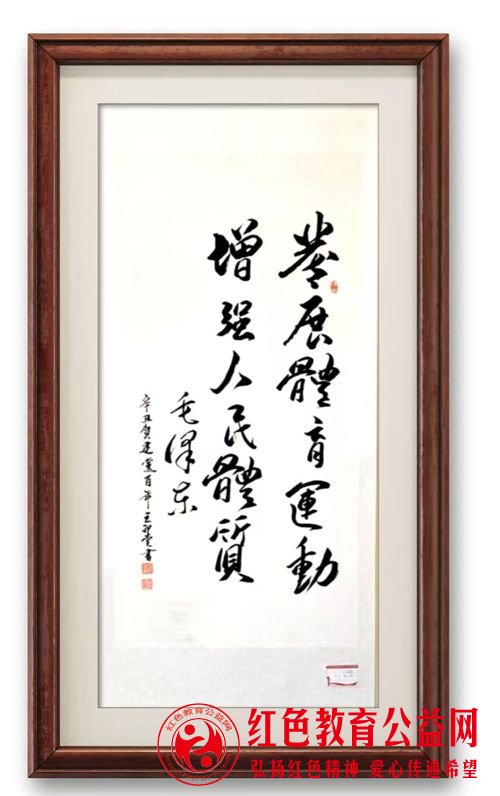 發展體育運動
增强人民體質
毛泽东
辛丑賀建黨百年王卯堂書
红色教育公益网
红色教育公益网
弘扬红色精神 爱心传递希望